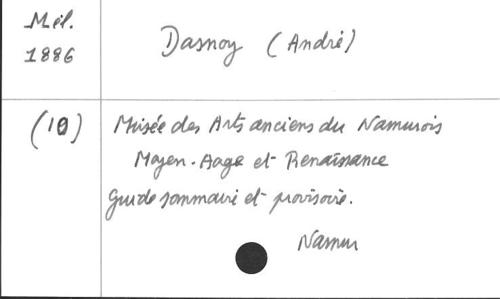 Mél.
1886
Dasnoy (André)
(10)
Musée des Arts anciens du Namurois
Moyen-Aage et Renaissance
Guide sommaire et provisoire.
Namur